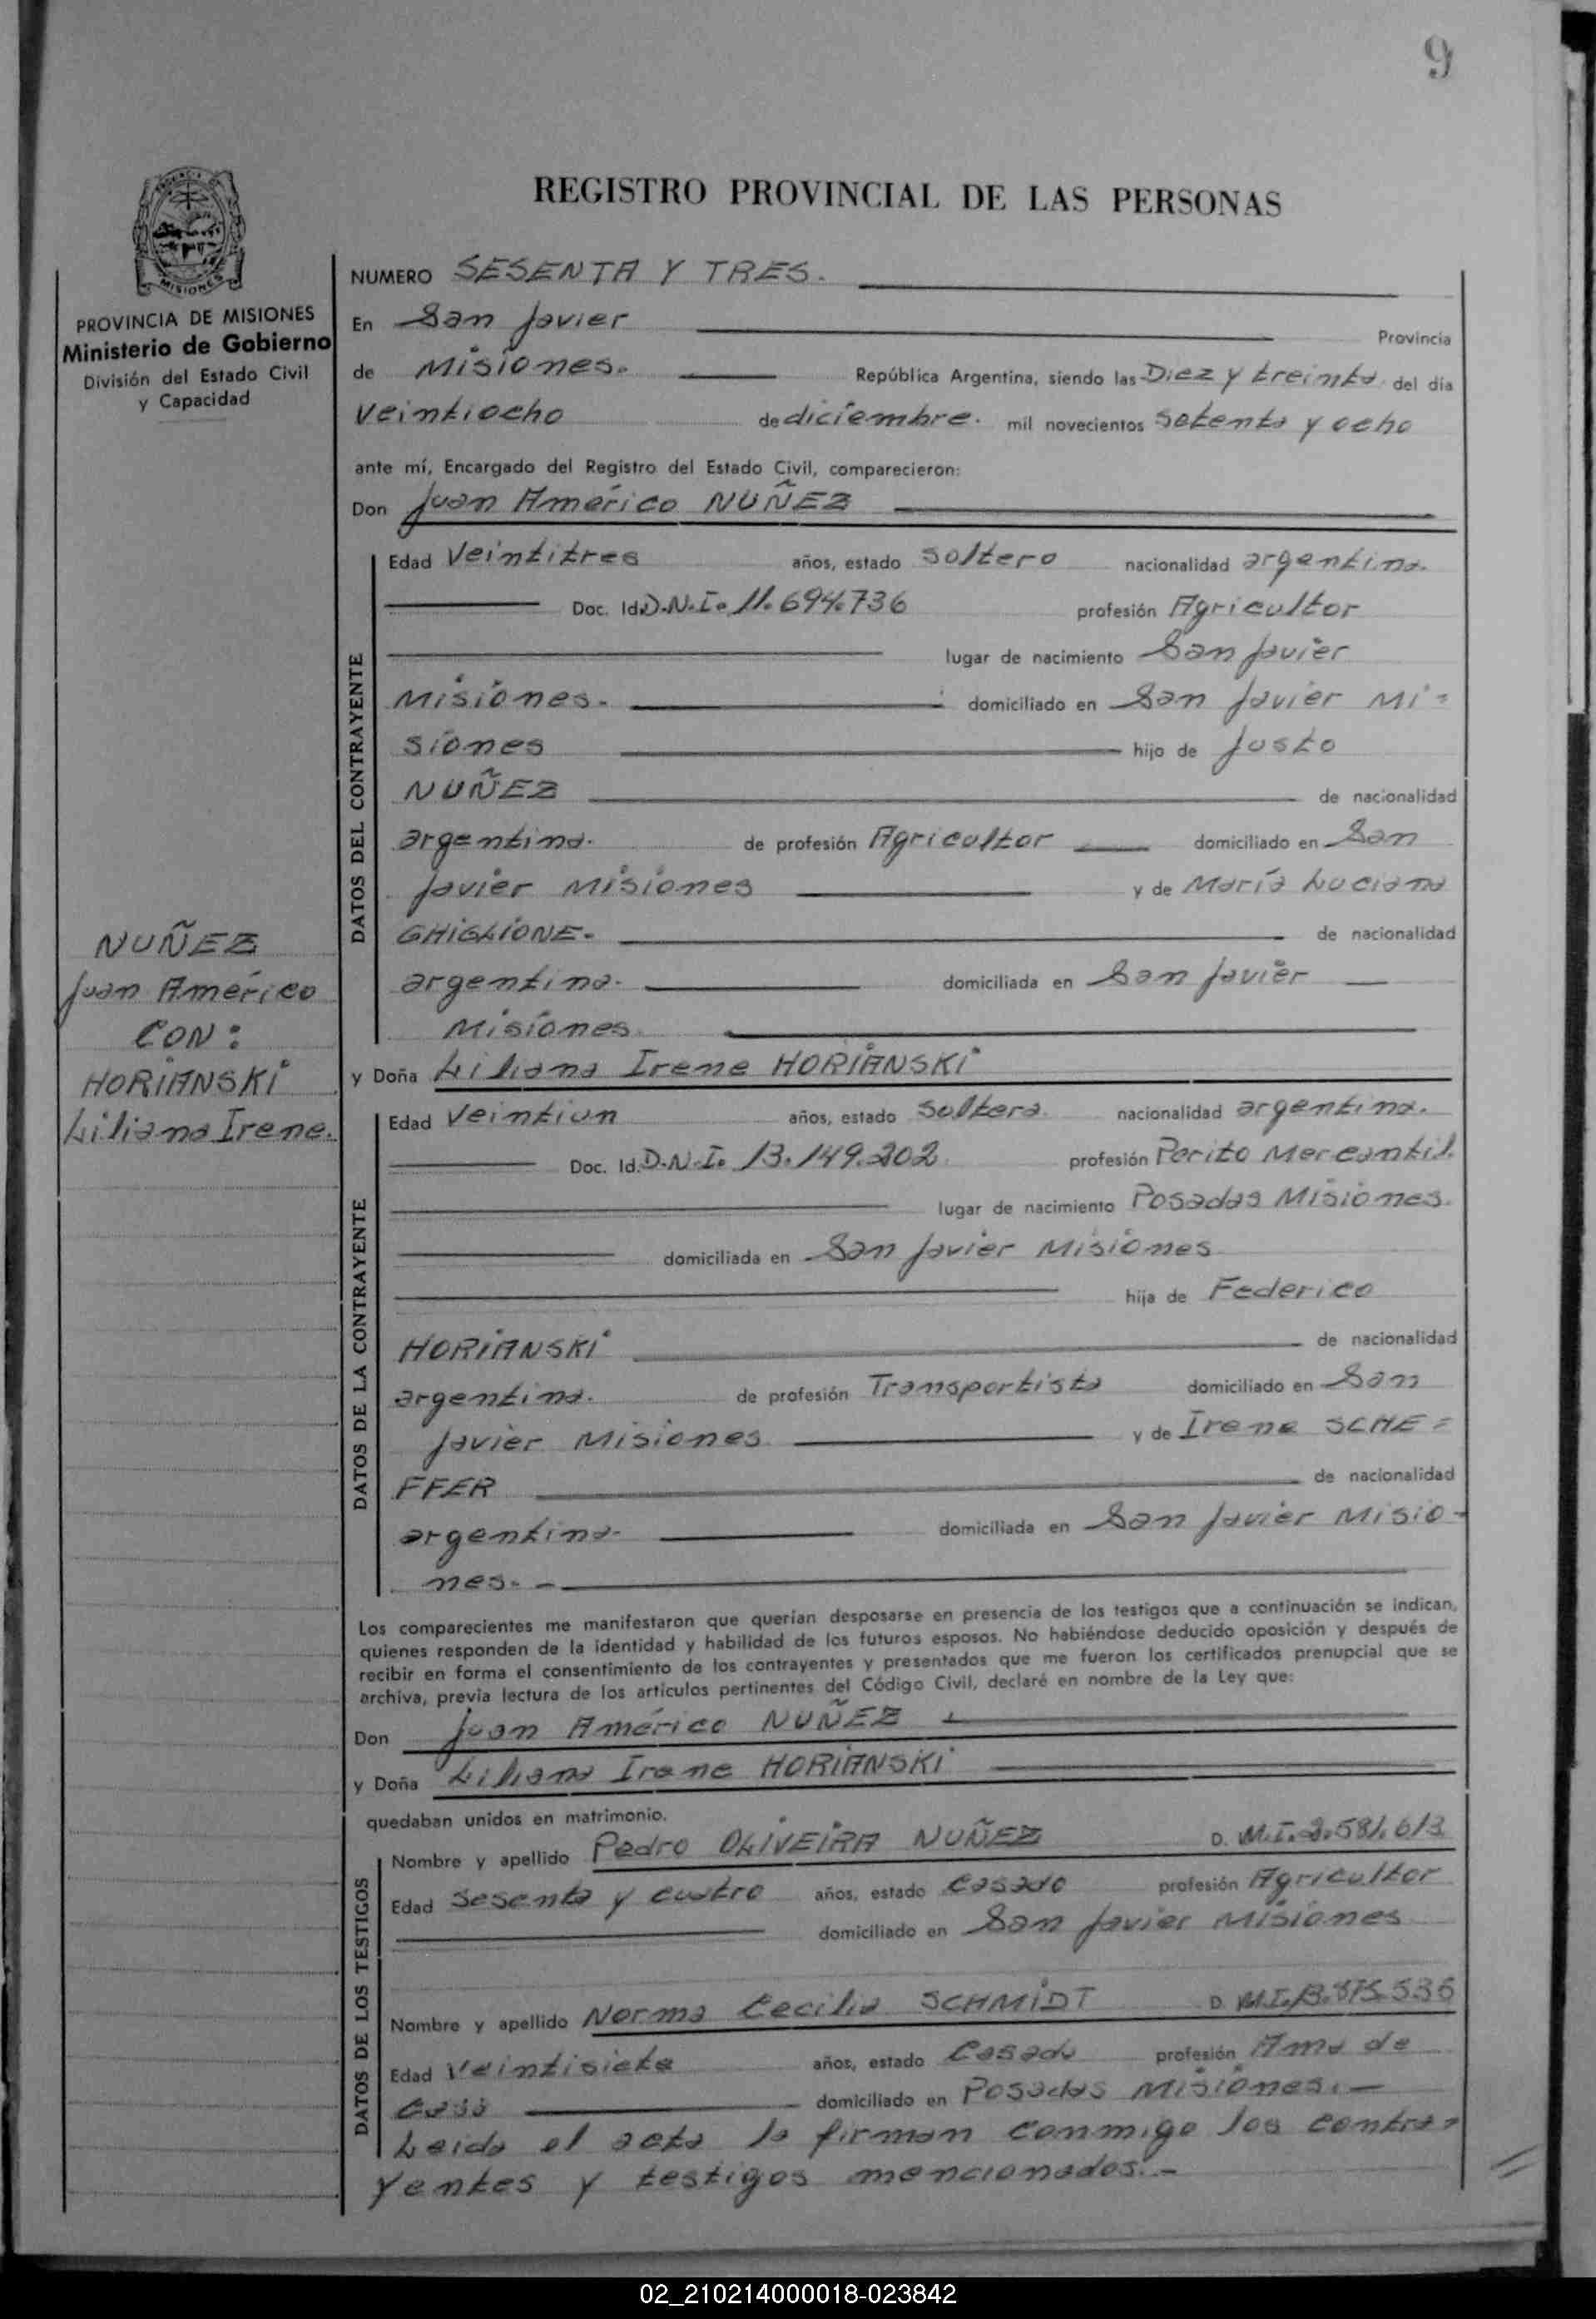 9
REGISTRO PROVINCIAL DE LAS PERSONAS
MISIONES
PROVINCIA DE MISIONES
Ministerio de Gobierno
División del Estado Civil
y Capacidad
NUMERO SESENTA Y TRES.
En San Javier Provincia
de Misiones. República Argentina, siendo las Diez y treinta del día
veintiocho de diciembre. mil novecientos setenta y ocho
ante mí, Encargado del Registro del Estado Civil, comparecieron:
Don Juan Américo NUÑEZ
DATOS DEL CONTRAYENTE
Edad Veintitres años, estado soltero nacionalidad argentina.
Doc. Id. D.N.I. 11.694.736 profesión Agricultor
lugar de nacimiento San Javier
Misiones. domiciliado en San Javier Mi=
siones hijo de Justo
NUÑEZ de nacionalidad
argentina. de profesión Agricultor domiciliado en San
Javier Misiones y de María Luciana
GHIGLIONE. de nacionalidad
argentina. domiciliada en San Javier
Misiones.
NUÑEZ
Juan Américo
CON:
HORIANSKI
Liliana Irene.
y Doña Liliana Irene HORIANSKI
DATOS DE LA CONTRAYENTE
Edad Veintiun años, estado soltera. nacionalidad argentina.
Doc. Id. D.N.I. 13.149.202 profesión Perito Mercantil.
lugar de nacimiento Posadas Misiones.
domiciliada en San Javier Misiones
hija de Federico
HORIANSKI de nacionalidad
argentina. de profesión Transportista domiciliado en San
Javier Misiones y de Irene SCHE=
FFER de nacionalidad
argentina. domiciliada en San Javier Misio-
nes. -
Los comparecientes me manifestaron que querían desposarse en presencia de los testigos que a continuación se indican,
quienes responden de la identidad y habilidad de los futuros esposos. No habiéndose deducido oposición y después de
recibir en forma el consentimiento de los contrayentes y presentados que me fueron los certificados prenupcial que se
archiva, previa lectura de los artículos pertinentes del Código Civil, declaré en nombre de la Ley que:
Don Juan Américo NUÑEZ
y Doña Liliana Irene HORIANSKI
quedaban unidos en matrimonio.
DATOS DE LOS TESTIGOS
Nombre y apellido Pedro OLIVEIRA NUÑEZ D. M.I. 2.581.613
Edad Sesenta y cuatro años, estado Casado profesión Agricultor
domiciliado en San Javier Misiones
Nombre y apellido Norma Cecilia SCHMIDT D. M.I.
Edad Veintisiete años, estado Casada profesión Ama de
casa domiciliado en Posadas Misiones.-
Leida el acta la firman conmigo los contra=
yentes y testigos mencionados.-
02_210214000018-023842